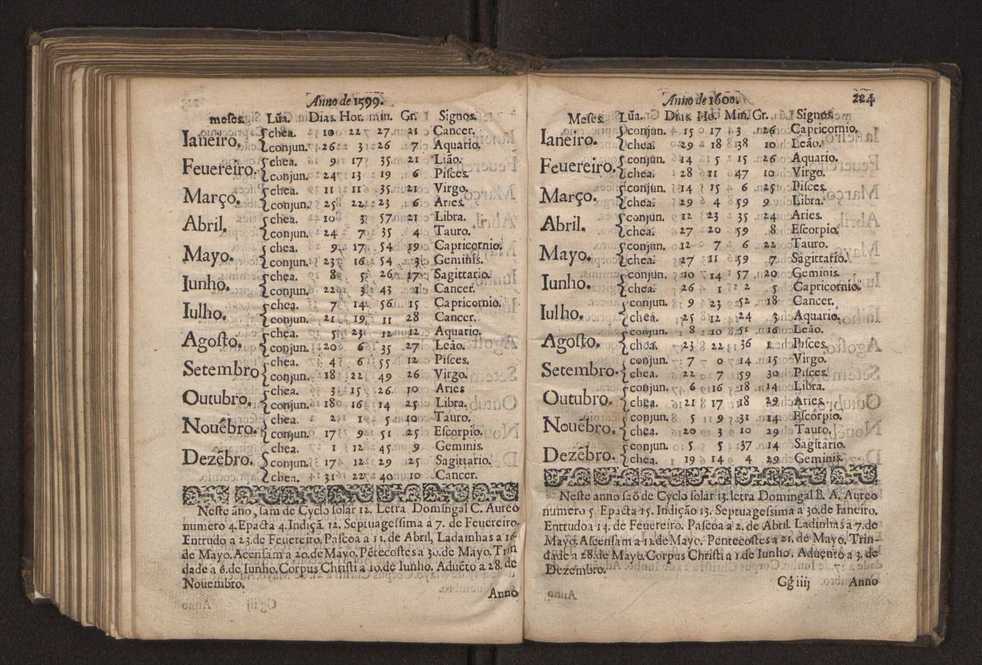 Anno de 1599.
meses. Lũa. Dias. Hor. min. Gr. Signos.
Ianeiro. chea. 10 22 27 21 Cancer.
conjun. 26 3 26 7 Aquario.
Feuereiro. chea. 9 17 35 21 Lião.
conjun. 24 13 19 6 Pisces.
Março. chea. 11 11 35 21 Virgo.
conjun. 25 22 23 6 Aries.
Abril. chea. 10 3 57 21 Libra.
conjun. 24 7 35 4 Tauro.
Mayo. chea. 9 17 54 19 Capricornio.
conjun. 23 16 54 3 Geminis.
Iunho. chea. 8 5 26 17 Sagittario.
conjun. 22 3 43 1 Cancer.
Iulho. chea. 7 14 56 15 Capricornio.
conjun. 21 19 11 28 Cancer.
Agosto. chea. 5 23 12 12 Aquario.
conjun. 20 6 35 27 Leão.
Setembro chea. 4 6 55 12 Pisces.
conjun. 18 22 49 26 Virgo.
Outubro. chea. 3 15 26 10 Aries
conjun. 18 16 14 25 Libra.
Nouẽbro. chea. 2 1 5 10 Tauro.
conjun. 17 9 51 25 Escorpio.
Dezẽbro. chea. 1 12 45 9 Geminis.
conjun. 17 12 29 25 Sagittario.
chea. 31 22 40 10 Cancer.
Neste ãno, sam de Cyclo solar 12. Letra Domingal C. Aureo
numero 4. Epacta 4. Indiçã. 12. Septuagessima á 7. de Feuereiro.
Entrudo a 23. de Feuereiro. Pascoa a 11. de Abril, Ladainhas a 16
de Mayo. Acensam a 20. de Mayo. Pẽtecostes a 30. de Mayo. Trin
dade a 6. de Iunho. Corpus Christi a 10. de Iunho. Aduẽto a 28. de
Nouembro.
Anno
Anno de 1600. 224
Meses. Lũa. Dias. Ho. Min. Gr. Signos.
Ianeiro. conjun. 15 17 3 26 Capricornio.
chea. 29 18 38 10 Leão.
Feuereiro. conjun. 14 5 15 26 Aquario.
chea. 28 11 47 10 Virgo.
Março. conjun. 14 15 6 25 Pisces.
chea. 29 4 59 9 Libra.
Abril. conjun. 12 23 35 24 Aries.
chea. 27 20 59 8 Escorpio.
Mayo. conjun. 12 7 6 22 Tauro.
chea. 27 11 59 7 Sagittario.
Iunho. conjun. 10 14 57 20 Geminis.
chea. 26 1 2 5 Capricornio.
Iulho. conjun. 9 23 52 18 Cancer.
chea. 25 12 24 3 Aquario.
Agosto. conjun. 8 10 51 16 Leão.
chea. 23 22 36 1 Pisces.
Setembro. conjun. 7 0 14 15 Virgo.
chea. 22 7 59 30 Pisces.
Outubro. conjun. 6 16 18 14 Libra.
chea. 21 17 18 29 Aries.
Nouẽbro. conjun. 5 11 31 14 Escorpio.
chea. 20 3 10 29 Tauro.
Dezẽbro. conjun. 5 5 37 14 Sagitario.
chea. 19 14 4 29 Geminis.
Neste anno saõ de Cyclo solar 13. letra Domingal B. A. Aureo
numero 5 Epacta 15. Indição 13. Septuagessima a 30. de Ianeiro.
Entrudo a 14. de Feuereiro. Pascoa a 2. de Abril. Ladinhas a 7. de
Mayo. Ascensam a 11. de Mayo. Pentecostes a 21. de Mayo. Trin-
dade a 28. de Mayo. Corpus Christi a 1. de Iunho. Aduento a 3. de
Dezembro.
Gg iiij Anno